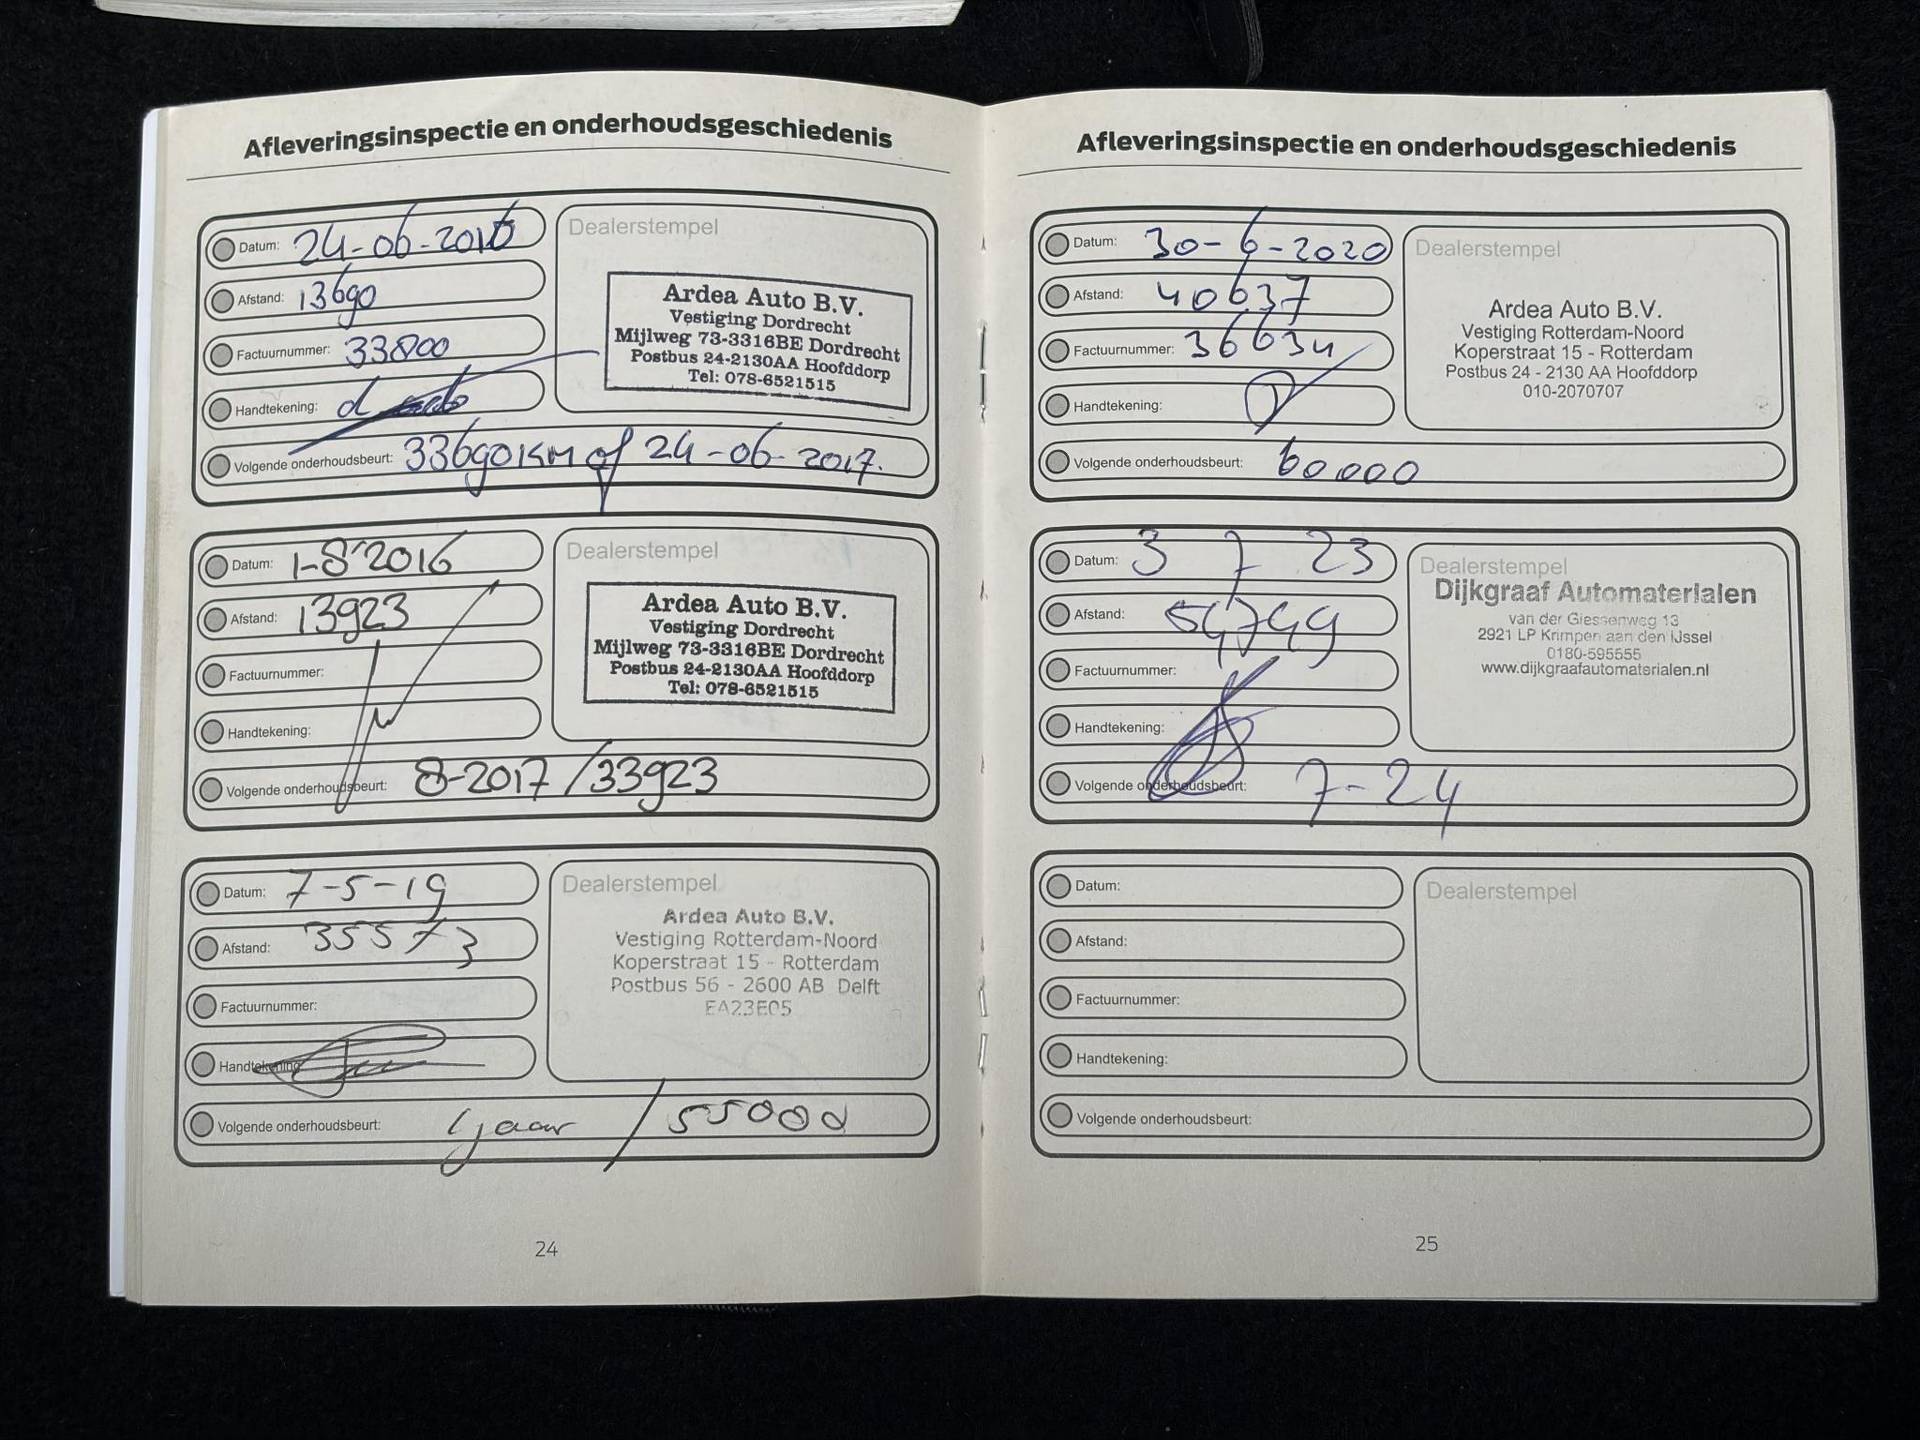 Afleveringsinspectie en onderhoudsgeschiedenis
Datum: 24-06-2016
Afstand: 13690
Factuurnummer: 33800
Handtekening:
Volgende onderhoudsbeurt: 33690KM of 24-06-2017.
Dealerstempel
Ardea Auto B.V.
Vestiging Dordrecht
Mijlweg 73-3316BE Dordrecht
Postbus 24-2130AA Hoofddorp
Tel: 078-6521515
Datum: 1-8-2016
Afstand: 13923
Factuurnummer:
Handtekening:
Volgende onderhoudsbeurt: 8-2017 / 33923
Dealerstempel
Ardea Auto B.V.
Vestiging Dordrecht
Mijlweg 73-3316BE Dordrecht
Postbus 24-2130AA Hoofddorp
Tel: 078-6521515
Datum: 7-5-19
Afstand: 35573
Factuurnummer:
Handtekening:
Volgende onderhoudsbeurt: 1 jaar / 55000
Dealerstempel
Ardea Auto B.V.
Vestiging Rotterdam-Noord
Koperstraat 15 - Rotterdam
Postbus 56 - 2600 AB Delft
EA23E05
24
Afleveringsinspectie en onderhoudsgeschiedenis
Datum: 30-6-2020
Afstand: 40637
Factuurnummer: 36634
Handtekening:
Volgende onderhoudsbeurt: 60000
Dealerstempel
Ardea Auto B.V.
Vestiging Rotterdam-Noord
Koperstraat 15 - Rotterdam
Postbus 24 - 2130 AA Hoofddorp
010-2070707
Datum: 3 7 23
Afstand: 54749
Factuurnummer:
Handtekening:
Volgende onderhoudsbeurt: 7-24
Dealerstempel
Dijkgraaf Automaterialen
van der Giessenweg 13
2921 LP Krimpen aan den IJssel
0180-595555
www.dijkgraafautomaterialen.nl
Datum:
Afstand:
Factuurnummer:
Handtekening:
Volgende onderhoudsbeurt:
Dealerstempel
25